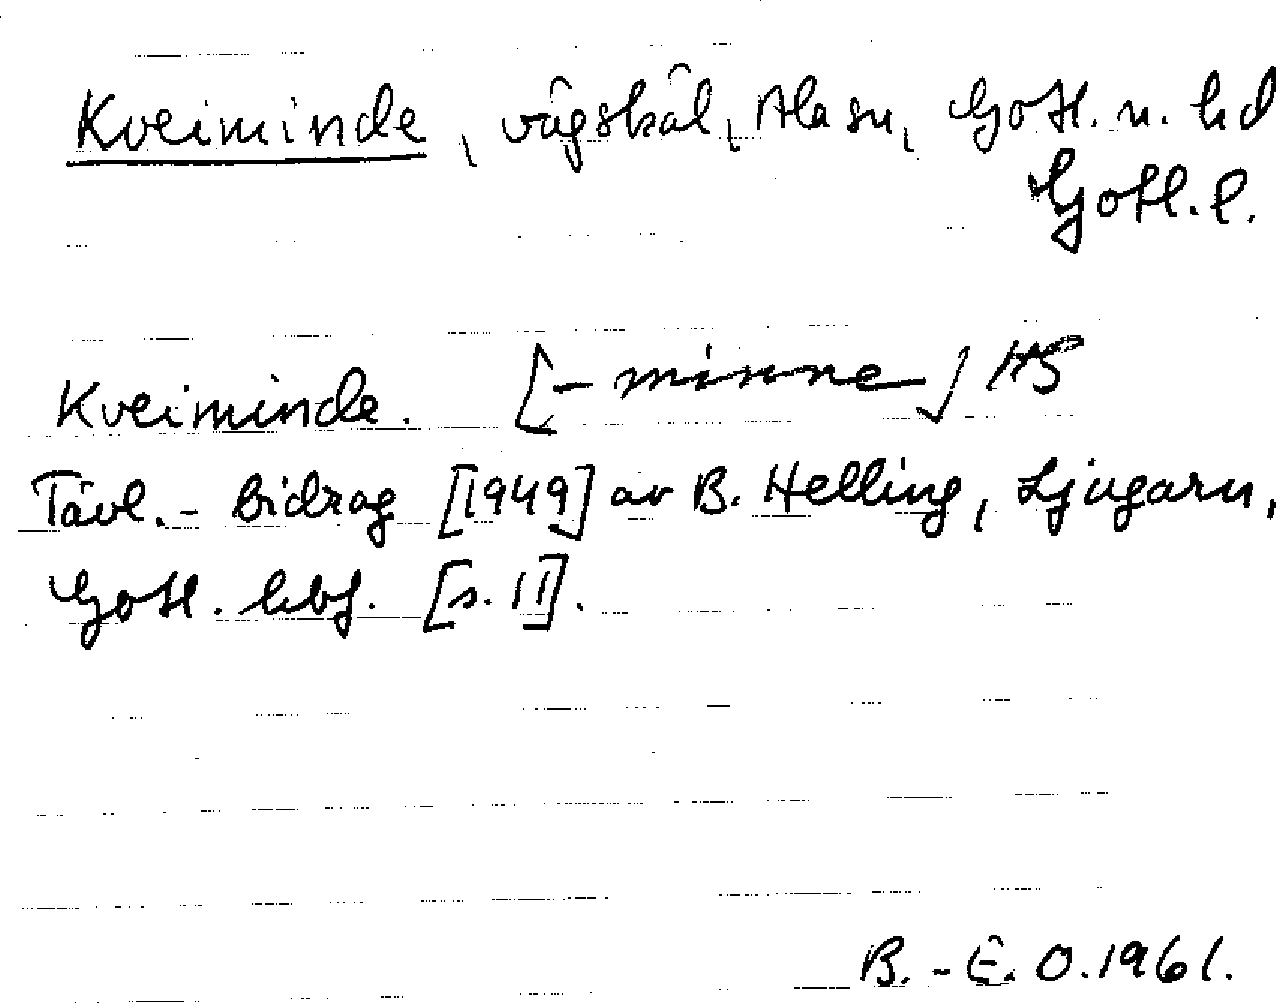 Kveiminde, vägskäl, Ala sn, Gotl. n. hd
Gotl. l.
Kveiminde. [- minne] HS
Tävl. - bidrag [1949] av B. Helling, Ljugarn,
Gotl. hbf. [s. 11].
B. - E. O. 1961.